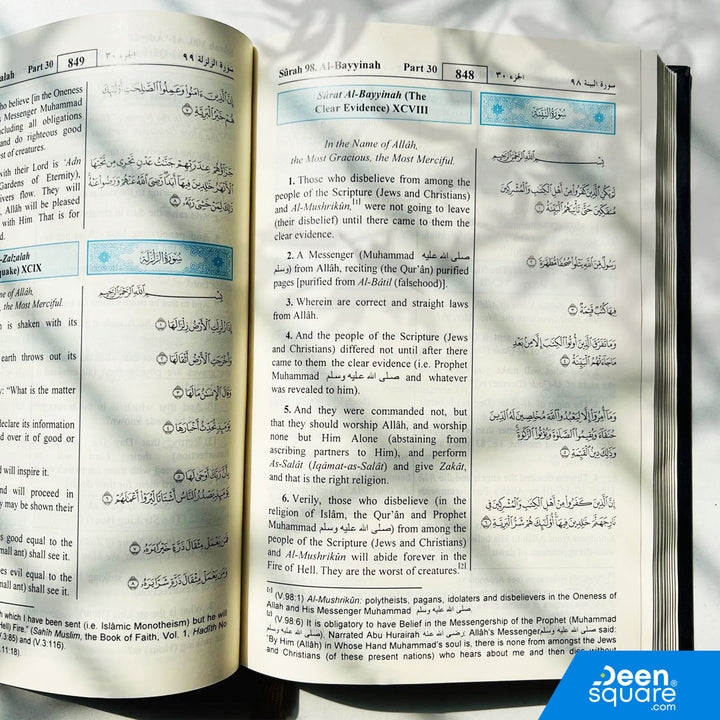 Sûrah 98. Al-Bayyinah Part 30 848 الجزء ٣٠ سورة البينة ٩٨
Sûrat Al-Bayyinah (The
Clear Evidence) XCVIII
In the Name of Allâh,
the Most Gracious, the Most Merciful.
1. Those who disbelieve from among the
people of the Scripture (Jews and Christians)
and Al-Mushrikûn,[1] were not going to leave
(their disbelief) until there came to them the
clear evidence.
2. A Messenger (Muhammad صلى الله عليه
وسلم) from Allâh, reciting (the Qur'ân) purified
pages [purified from Al-Bâtil (falsehood)].
3. Wherein are correct and straight laws
from Allâh.
4. And the people of the Scripture (Jews
and Christians) differed not until after there
came to them the clear evidence (i.e. Prophet
Muhammad صلى الله عليه وسلم and whatever
was revealed to him).
5. And they were commanded not, but
that they should worship Allâh, and worship
none but Him Alone (abstaining from
ascribing partners to Him), and perform
As-Salât (Iqâmat-as-Salât) and give Zakât,
and that is the right religion.
6. Verily, those who disbelieve (in the
religion of Islâm, the Qur'ân and Prophet
Muhammad صلى الله عليه وسلم) from among the
people of the Scripture (Jews and Christians)
and Al-Mushrikûn will abide forever in the
Fire of Hell. They are the worst of creatures.[2]
سُورَةُ البَيِّنَةِ
بِسْمِ اللَّهِ الرَّحْمَٰنِ الرَّحِيمِ
لَمْ يَكُنِ الَّذِينَ كَفَرُوا مِنْ أَهْلِ الْكِتَابِ وَالْمُشْرِكِينَ
مُنفَكِّينَ حَتَّىٰ تَأْتِيَهُمُ الْبَيِّنَةُ ١
رَسُولٌ مِّنَ اللَّهِ يَتْلُو صُحُفًا مُّطَهَّرَةً ٢
فِيهَا كُتُبٌ قَيِّمَةٌ ٣
وَمَا تَفَرَّقَ الَّذِينَ أُوتُوا الْكِتَابَ إِلَّا مِنْ بَعْدِ
مَا جَاءَتْهُمُ الْبَيِّنَةُ ٤
وَمَا أُمِرُوا إِلَّا لِيَعْبُدُوا اللَّهَ مُخْلِصِينَ لَهُ الدِّينَ
حُنَفَاءَ وَيُقِيمُوا الصَّلَوٰةَ وَيُؤْتُوا الزَّكَوٰةَ
وَذَٰلِكَ دِينُ الْقَيِّمَةِ ٥
إِنَّ الَّذِينَ كَفَرُوا مِنْ أَهْلِ الْكِتَابِ وَالْمُشْرِكِينَ فِي
نَارِ جَهَنَّمَ خَالِدِينَ فِيهَا أُولَٰئِكَ هُمْ شَرُّ الْبَرِيَّةِ ٦
[1] (V.98:1) Al-Mushrikûn: polytheists, pagans, idolaters and disbelievers in the Oneness of
Allah and His Messenger Muhammad صلى الله عليه وسلم
[2] (V.98:6) It is obligatory to have Belief in the Messengership of the Prophet (Muhammad
صلى الله عليه وسلم). Narrated Abu Hurairah رضي الله عنه: Allâh's Messenger صلى الله عليه وسلم said:
"By Him (Allâh) in Whose Hand Muhammad's soul is, there is none from amongst the Jews
and Christians (of these present nations) who hears about me and then dies without
alah Part 30 849 الجزء ٣٠ سورة الزلزلة ٩٩
ho believe [in the Oneness
s Messenger Muhammad
cluding all obligations
and do righteous good
st of creatures.
with their Lord is 'Adn
Gardens of Eternity),
ivers flow. They will
Allâh will be pleased
with Him That is for
d.
-Zalzalah
quake) XCIX
me of Allâh,
the Most Merciful.
h is shaken with its
earth throws out its
y: "What is the matter
declare its information
d over it of good or
d will inspire it.
nd will proceed in
y may be shown their
s good equal to the
mall ant) shall see it.
es evil equal to the
mall ant) shall see it.
إِنَّ الَّذِينَ آمَنُوا وَعَمِلُوا الصَّالِحَاتِ أُولَٰئِكَ
هُمْ خَيْرُ الْبَرِيَّةِ ٧
جَزَاؤُهُمْ عِندَ رَبِّهِمْ جَنَّاتُ عَدْنٍ تَجْرِي مِن تَحْتِهَا
الْأَنْهَارُ خَالِدِينَ فِيهَا أَبَدًا رَّضِيَ اللَّهُ عَنْهُمْ وَرَضُوا عَنْهُ
ذَٰلِكَ لِمَنْ خَشِيَ رَبَّهُ ٨
سُورَةُ الزَّلْزَلَةِ
بِسْمِ اللَّهِ الرَّحْمَٰنِ الرَّحِيمِ
إِذَا زُلْزِلَتِ الْأَرْضُ زِلْزَالَهَا ١
وَأَخْرَجَتِ الْأَرْضُ أَثْقَالَهَا ٢
وَقَالَ الْإِنسَانُ مَا لَهَا ٣
يَوْمَئِذٍ تُحَدِّثُ أَخْبَارَهَا ٤
بِأَنَّ رَبَّكَ أَوْحَىٰ لَهَا ٥
يَوْمَئِذٍ يَصْدُرُ النَّاسُ أَشْتَاتًا لِّيُرَوْا أَعْمَالَهُمْ ٦
فَمَن يَعْمَلْ مِثْقَالَ ذَرَّةٍ خَيْرًا يَرَهُ ٧
وَمَن يَعْمَلْ مِثْقَالَ ذَرَّةٍ شَرًّا يَرَهُ ٨
h which I have been sent (i.e. Islâmic Monotheism) but he will
Hell) Fire." (Sahîh Muslim, the Book of Faith, Vol. 1, Hadîth No
V.3:85) and (V.3:116).
11:18)
Deen
square®
.com